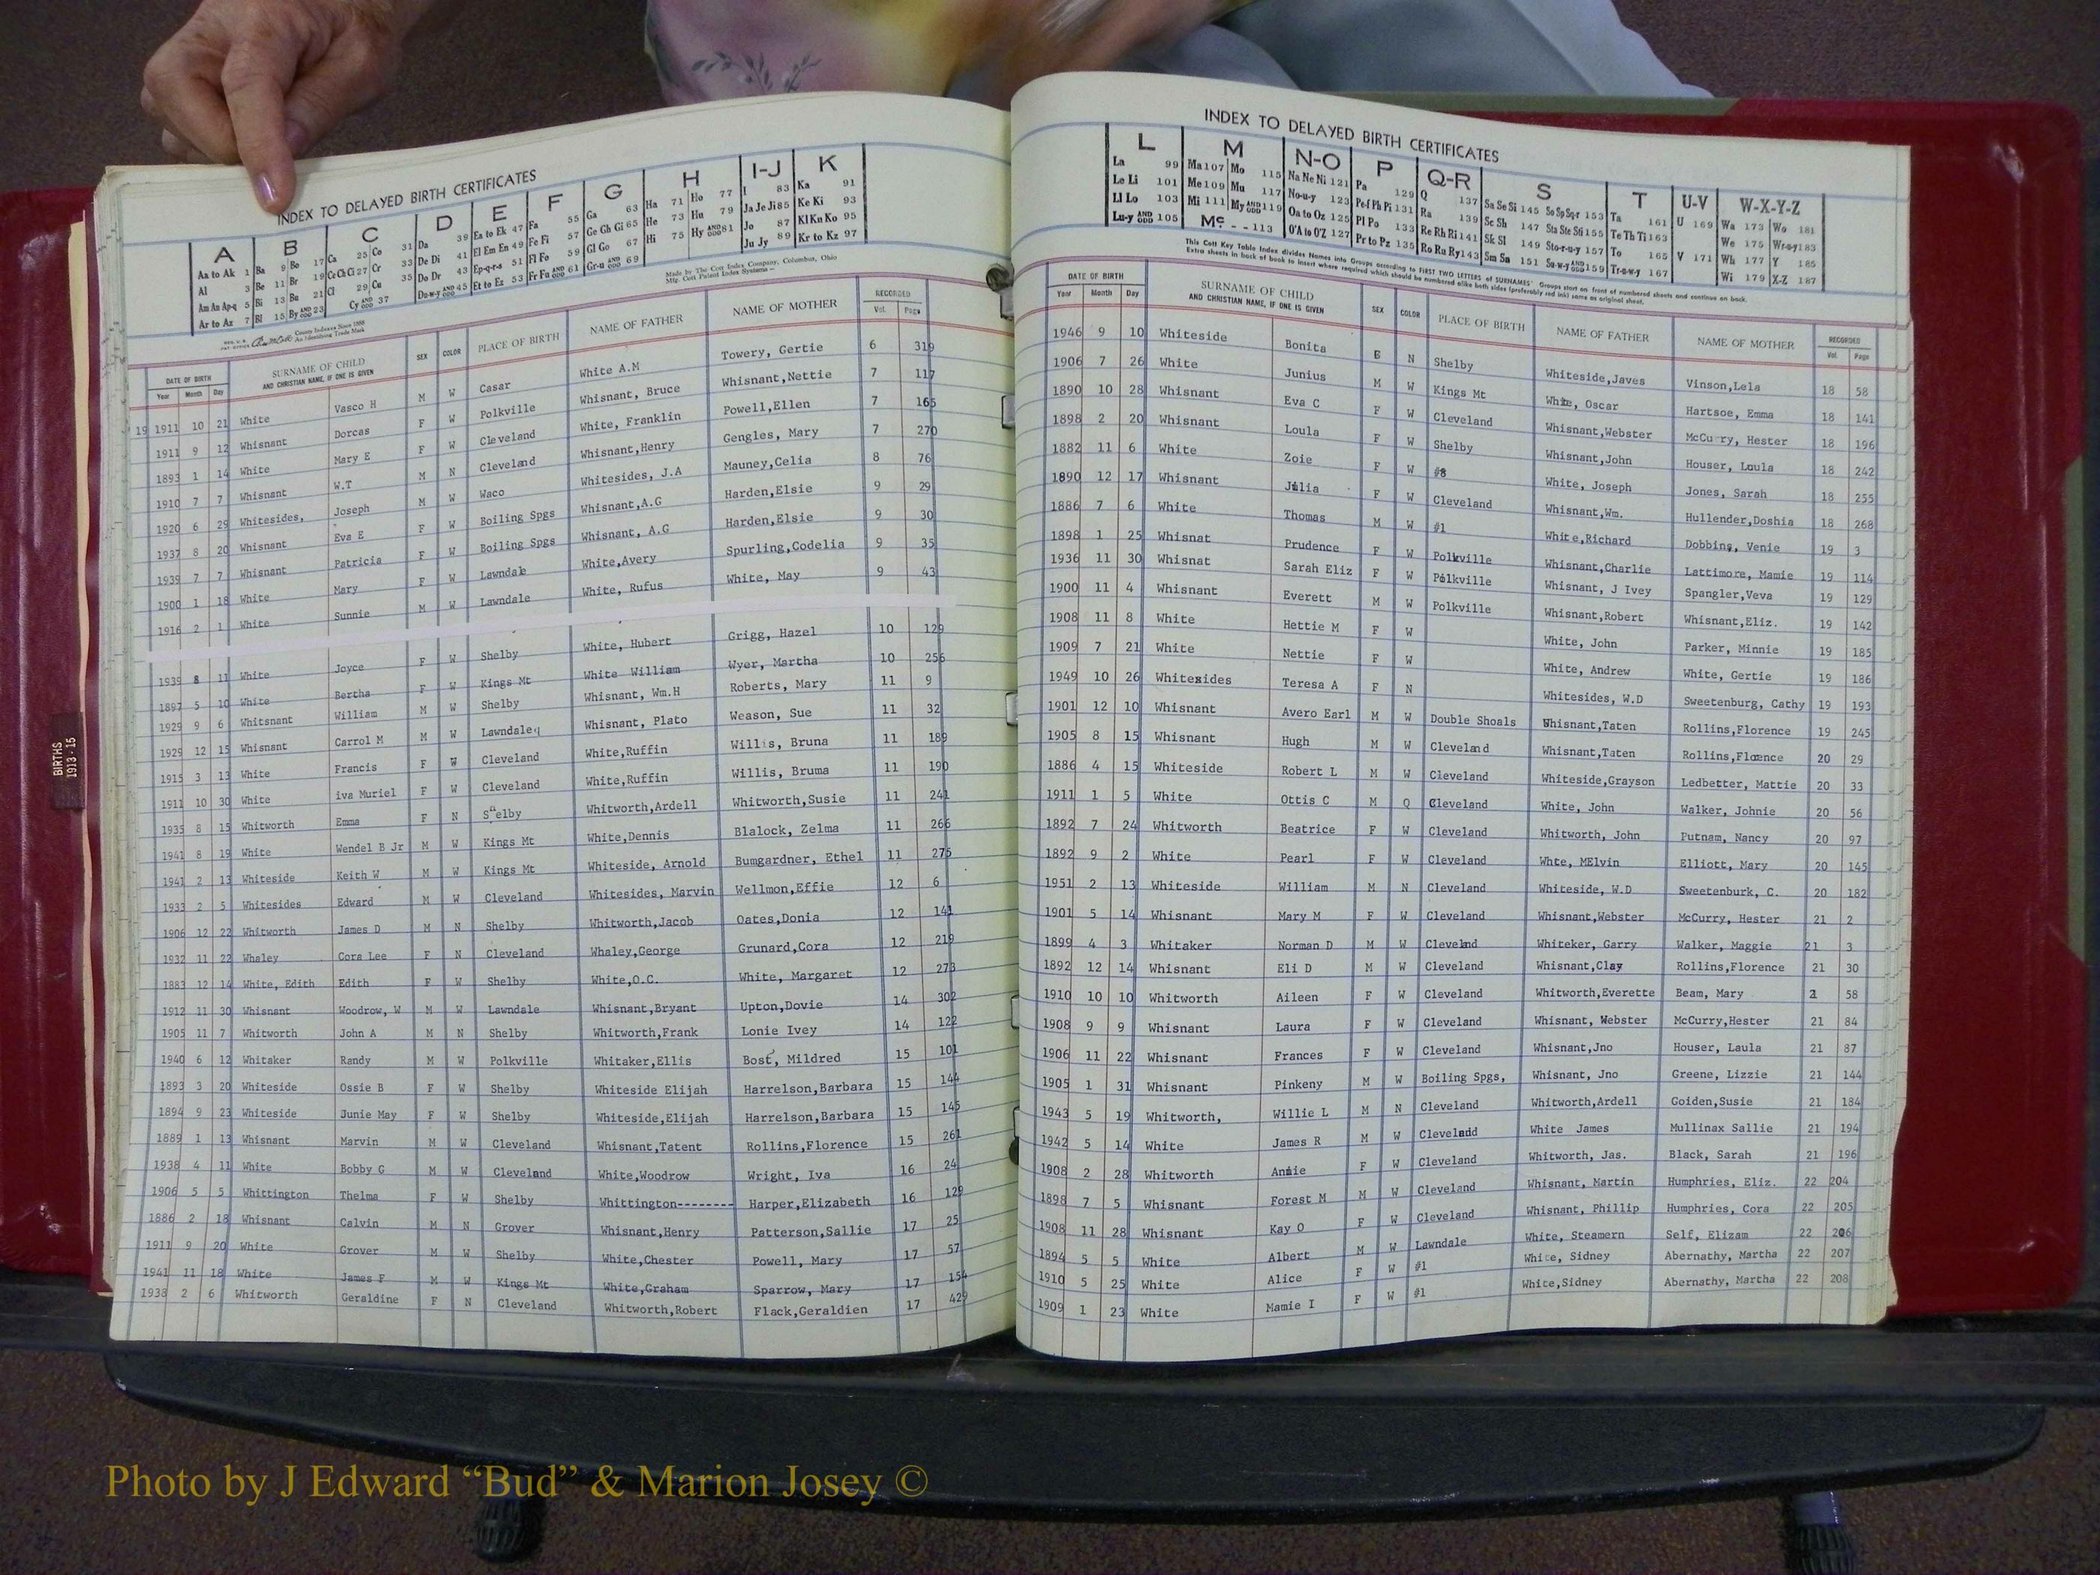 INDEX TO DELAYED BIRTH CERTIFICATES
A B C D E F G H I-J K
Aa to Ak 1 Ba 9 Bo 17 Ca 25 Co 31 Da 39 Ea to Ek 47 Fa 55 Ga 63 Ha 71 Ho 77 I 83 Ka 91
Al 3 Be 11 Br 19 Ce Ch Ci 27 Cr 33 De Di 41 El Em En 49 Fe Fi 57 Ge Gh Gi 65 He 73 Hu 79 Ja Je Ji 85 Ke Ki 93
Am An Ap-q 5 Bi 13 Bu 21 Cl 29 Cu 35 Do Dr 43 Ep-q-r-s 51 Fl Fo 59 Gl Go 67 Hi 75 Hy AND ODD 81 Jo 87 Kl Kn Ko 95
Ar to Az 7 Bl 15 By AND ODD 23 Cy AND ODD 37 Du-w-y AND ODD 45 Et to Ez 53 Fr Fu AND ODD 61 Gr-u AND ODD 69 Ju Jy 89 Kr to Kz 97
County Indexes Since 1888
An Identifying Trade Mark
Made by The Cott Index Company, Columbus, Ohio
Mfg. Cott Patent Index Systems
DATE OF BIRTH Year Month Day SURNAME OF CHILD AND CHRISTIAN NAME, IF ONE IS GIVEN SEX COLOR PLACE OF BIRTH NAME OF FATHER NAME OF MOTHER RECORDED Vol. Page
19 1911 10 21 White Vasco H M W Casar White A.M Towery, Gertie 6 319
1911 9 12 Whisnant Dorcas F W Polkville Whisnant, Bruce Whisnant,Nettie 7 117
1893 1 14 White Mary E F W Cleveland White, Franklin Powell,Ellen 7 165
1910 7 7 Whisnant W.T M N Cleveland Whisnant,Henry Gengles, Mary 7 270
1920 6 29 Whitesides, Joseph M W Waco Whitesides, J.A Mauney,Celia 8 76
1937 8 20 Whisnant Eva E F W Boiling Spgs Whisnant,A.G Harden,Elsie 9 29
1939 7 7 Whisnant Patricia F W Boiling Spgs Whisnant, A.G Harden,Elsie 9 30
1900 1 18 White Mary F W Lawndale White,Avery Spurling,Codelia 9 35
1916 2 1 White Sunnie M W Lawndale White, Rufus White, May 9 43
1939 8 11 White Joyce F W Shelby White, Hubert Grigg, Hazel 10 129
1897 5 10 White Bertha F W Kings Mt White William Wyer, Martha 10 256
1929 9 6 Whitsnant William M W Shelby Whisnant, Wm.H Roberts, Mary 11 9
1929 12 15 Whisnant Carrol M M W Lawndale Whisnant, Plato Weason, Sue 11 32
1915 3 13 White Francis F W Cleveland White,Ruffin Willis, Bruna 11 189
1911 10 30 White iva Muriel F W Cleveland White,Ruffin Willis, Bruma 11 190
1935 8 15 Whitworth Emma F N Shelby Whitworth,Ardell Whitworth,Susie 11 241
1941 8 19 White Wendel B Jr M W Kings Mt White,Dennis Blalock, Zelma 11 266
1941 2 13 Whiteside Keith W M W Kings Mt Whiteside, Arnold Bumgardner, Ethel 11 275
1933 2 5 Whitesides Edward M W Cleveland Whitesides, Marvin Wellmon,Effie 12 6
1906 12 22 Whitworth James D M N Shelby Whitworth,Jacob Oates,Donia 12 141
1932 11 22 Whaley Cora Lee F N Cleveland Whaley,George Grunard,Cora 12 219
1883 12 14 White, Edith Edith F W Shelby White,O.C. White, Margaret 12 273
1912 11 30 Whisnant Woodrow, W M W Lawndale Whisnant,Bryant Upton,Dovie 14 302
1905 11 7 Whitworth John A M N Shelby Whitworth,Frank Lonie Ivey 14 122
1940 6 12 Whitaker Randy M W Polkville Whitaker,Ellis Bost, Mildred 15 101
1893 3 20 Whiteside Ossie B F W Shelby Whiteside Elijah Harrelson,Barbara 15 144
1894 9 23 Whiteside Junie May F W Shelby Whiteside,Elijah Harrelson,Barbara 15 145
1889 1 13 Whisnant Marvin M W Cleveland Whisnant,Tatent Rollins,Florence 15 261
1938 4 11 White Bobby G M W Cleveland White,Woodrow Wright, Iva 16 24
1906 5 5 Whittington Thelma F W Shelby Whittington--------- Harper,Elizabeth 16 129
1886 2 18 Whisnant Calvin M N Grover Whisnant,Henry Patterson,Sallie 17 25
1911 9 20 White Grover M W Shelby White,Chester Powell, Mary 17 57
1941 11 18 White James F M W Kings Mt White,Graham Sparrow, Mary 17 154
1933 2 6 Whitworth Geraldine F N Cleveland Whitworth,Robert Flack,Geraldien 17 429
INDEX TO DELAYED BIRTH CERTIFICATES
L M N-O P Q-R S T U-V W-X-Y-Z
La 99 Ma 107 Mo 115 Na Ne Ni 121 Pa 129 Q 137 Sa Se Si 145 So Sp Sq-r 153 Ta 161 U 169 Wa 173 Wo 181
Le Li 101 Me 109 Mu 117 No-u-y 123 Pe-f Ph Pi 131 Ra 139 Sc Sh 147 Sta Ste Sti 155 Te Th Ti 163 We 175 Wr-u-y 183
Ll Lo 103 Mi 111 My AND ODD 119 Oa to Oz 125 Pl Po 133 Re Rh Ri 141 Sk Sl 149 Sto-r-u-y 157 To 165 V 171 Wh 177 Y 185
Lu-y AND ODD 105 Mc - - 113 O'A to O'Z 127 Pr to Pz 135 Ro Ru Ry 143 Sm Sn 151 Su-w-y AND ODD 159 Tr-u-w-y 167 Wi 179 X-Z 187
This Cott Key Table Index divides Names into Groups according to FIRST TWO LETTERS of SURNAMES. Groups start on front of numbered sheets and continue on back.
Extra sheets in back of book to insert where required which should be numbered alike both sides (preferably red ink) same as original sheet.
DATE OF BIRTH Year Month Day SURNAME OF CHILD AND CHRISTIAN NAME, IF ONE IS GIVEN SEX COLOR PLACE OF BIRTH NAME OF FATHER NAME OF MOTHER RECORDED Vol. Page
1946 9 10 Whiteside Bonita N Shelby Whiteside,Javes Vinson,Lela 18 58
1906 7 26 White Junius M W Kings Mt White, Oscar Hartsoe, Emma 18 141
1890 10 28 Whisnant Eva C F W Cleveland Whisnant,Webster McCurry, Hester 18 196
1898 2 20 Whisnant Loula F W Shelby Whisnant,John Houser, Laula 18 242
1882 11 6 White Zoie F W #8 White, Joseph Jones, Sarah 18 255
1890 12 17 Whisnant Julia F W Cleveland Whisnant,Wm. Hullender,Doshia 18 268
1886 7 6 White Thomas M W #1 White,Richard Dobbins, Venie 19 3
1898 1 25 Whisnat Prudence F W Polkville Whisnant,Charlie Lattimore, Mamie 19 114
1936 11 30 Whisnat Sarah Eliz F W Polkville Whisnant, J Ivey Spangler,Veva 19 129
1900 11 4 Whisnant Everett M W Polkville Whisnant,Robert Whisnant,Eliz. 19 142
1908 11 8 White Hettie M F W White, John Parker, Minnie 19 185
1909 7 21 White Nettie F W White, Andrew White, Gertie 19 186
1949 10 26 Whitesides Teresa A F N Whitesides, W.D Sweetenburg, Cathy 19 193
1901 12 10 Whisnant Avero Earl M W Double Shoals Whisnant,Taten Rollins,Florence 19 245
1905 8 15 Whisnant Hugh M W Cleveland Whisnant,Taten Rollins,Florence 20 29
1886 4 15 Whiteside Robert L M W Cleveland Whiteside,Grayson Ledbetter, Mattie 20 33
1911 1 5 White Ottis C M Q Cleveland White, John Walker, Johnie 20 56
1892 7 24 Whitworth Beatrice F W Cleveland Whitworth, John Putnam, Nancy 20 97
1892 9 2 White Pearl F W Cleveland Whte, MElvin Elliott, Mary 20 145
1951 2 13 Whiteside William M N Cleveland Whiteside, W.D Sweetenburk, C. 20 182
1901 5 14 Whisnant Mary M F W Cleveland Whisnant,Webster McCurry, Hester 21 2
1899 4 3 Whitaker Norman D M W Cleveland Whiteker, Garry Walker, Maggie 21 3
1892 12 14 Whisnant Eli D M W Cleveland Whisnant,Clay Rollins,Florence 21 30
1910 10 10 Whitworth Aileen F W Cleveland Whitworth,Everette Beam, Mary 2 58
1908 9 9 Whisnant Laura F W Cleveland Whisnant, Webster McCurry,Hester 21 84
1906 11 22 Whisnant Frances F W Cleveland Whisnant,Jno Houser, Laula 21 87
1905 1 31 Whisnant Pinkeny M W Boiling Spgs, Whisnant, Jno Greene, Lizzie 21 144
1943 5 19 Whitworth, Willie L M N Cleveland Whitworth,Ardell Goiden,Susie 21 184
1942 5 14 White James R M W Cleveladd White James Mullinax Sallie 21 194
1908 2 28 Whitworth Annie F W Cleveland Whitworth, Jas. Black, Sarah 21 196
1898 7 5 Whisnant Forest M M W Cleveland Whisnant, Martin Humphries, Eliz. 22 204
1908 11 28 Whisnant Kay O F W Cleveland Whisnant, Phillip Humphries, Cora 22 205
1894 5 5 White Albert M W Lawndale White, Steamern Self, Elizam 22 206
1910 5 25 White Alice F W #1 White, Sidney Abernathy, Martha 22 207
1909 1 23 White Mamie I F W #1 White,Sidney Abernathy, Martha 22 208
BIRTHS
1913-15
Photo by J Edward “Bud” & Marion Josey ©